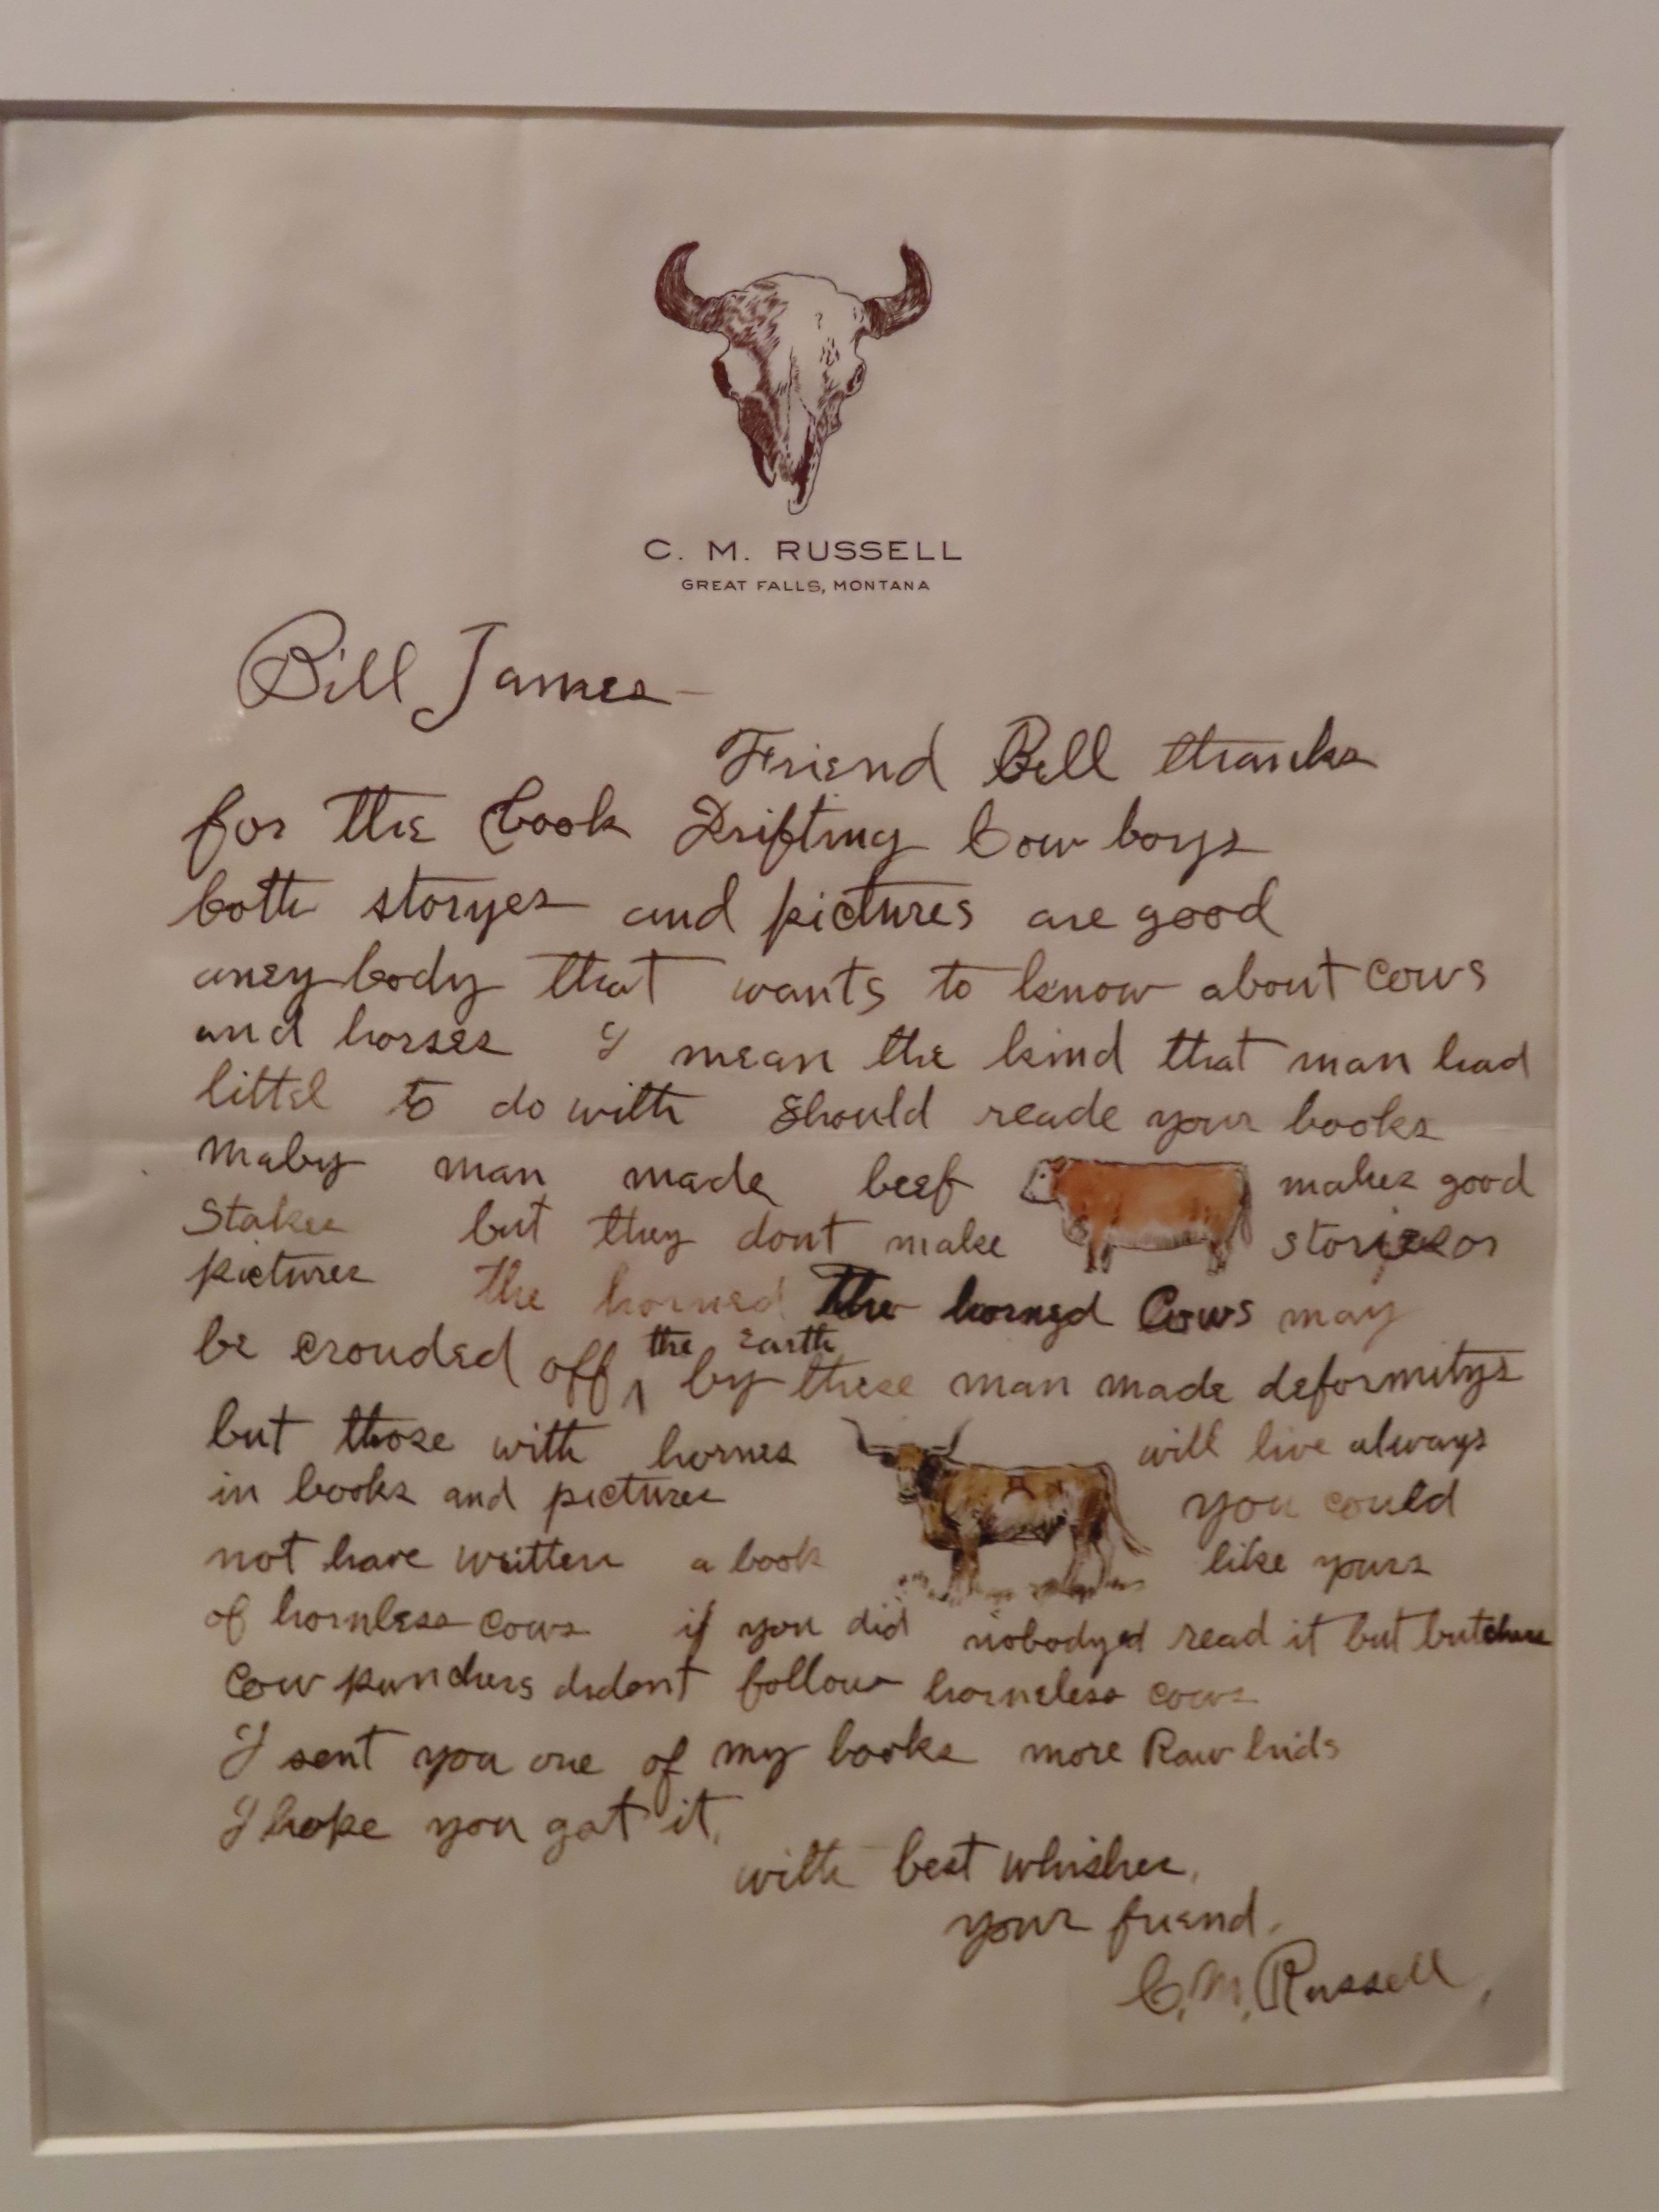 C. M. RUSSELL
GREAT FALLS, MONTANA
Bill James —
Friend Bill thanks
for the book Drifting Cow boys
both storyes and pictures are good
aney body that wants to know about cows
and horses I mean the kind that man had
littel to do with should reade your books
maby man made beef makes good
stakes but they dont make stories or
pictures the horned The horned Cows may
be crouded off ^ the Earth by these man made deformitys
but those with hornes will live always
in books and pictures you could
not have written a book like yours
of hornless cows if you did nobodyed read it but butchers
Cow punchers dident follow horneless cows
I sent you one of my books more Rawhids
I hope you got it,
with best whishes,
your friend,
C. M. Russell